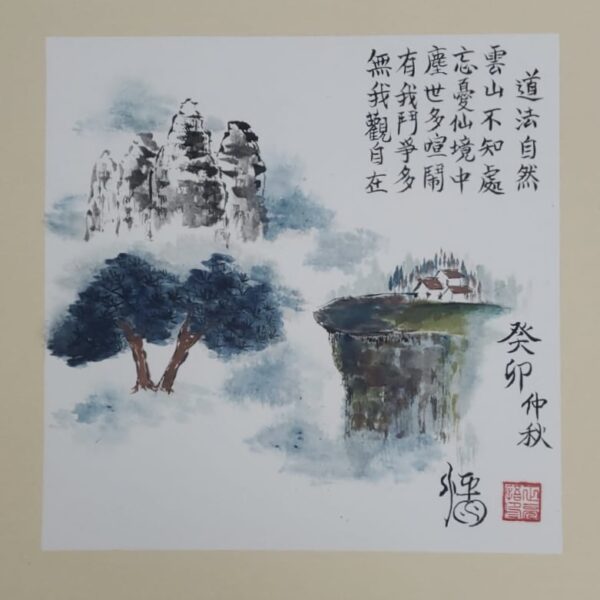 道法自然
雲山不知處
忘憂仙境中
塵世多喧鬧
有我鬥爭多
無我觀自在
癸卯
仲秋